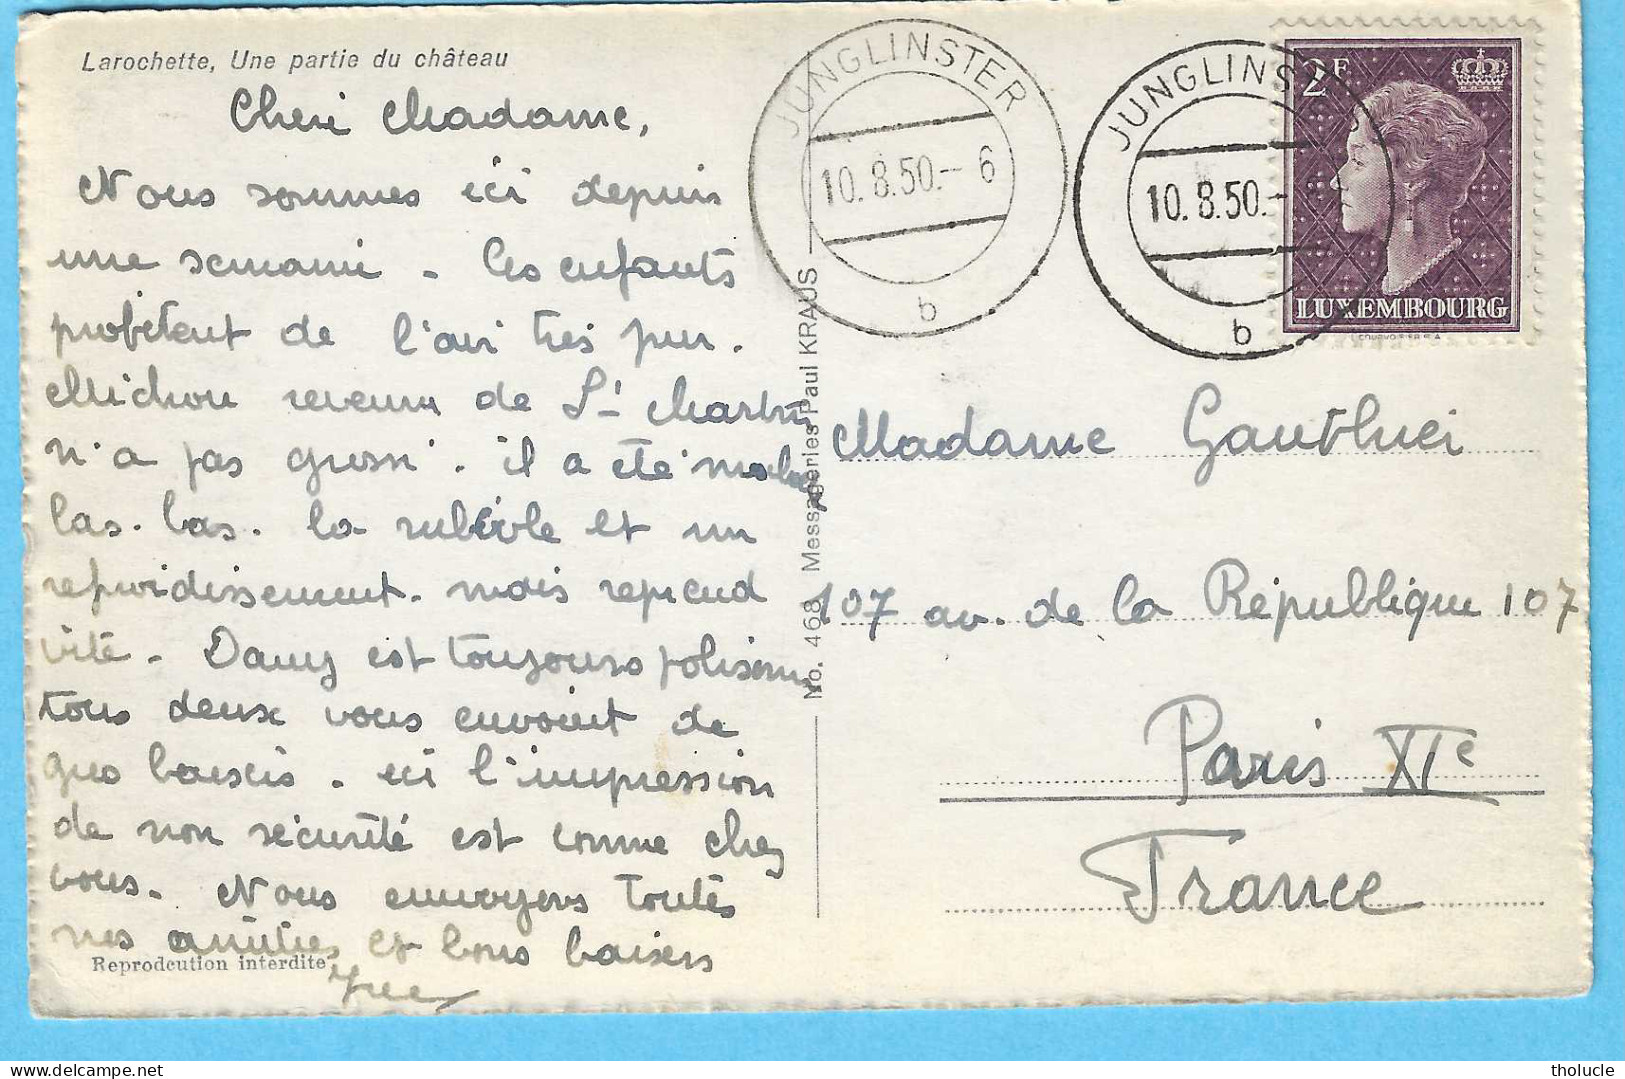 Larochette, Une partie du château
Chère Madame,
Nous sommes ici depuis
une semaine - les enfants
profitent de l'air très pur.
Michou revenu de St Martin
n'a pas grossi. il a été malade
las-bas. la rubéole et un
refroidissement. mais reprend
vite. Dany est toujours polisson
tous deux vous envoient de
gros baisers. ici l'impression
de non sécurité est comme chez
vous. Nous envoyons toutes
nos amitiés et bons baisers
Reprodcution interdite
No. 468 Messageries Paul KRAUS
JUNGLINSTER
10.8.50.-6
b
JUNGLINSTER
10.8.50.-
b
2F
LUXEMBOURG
COURVOISIER S.A.
Madame Gauthier
107 av. de la République 107
Paris XIe
France
tholucle